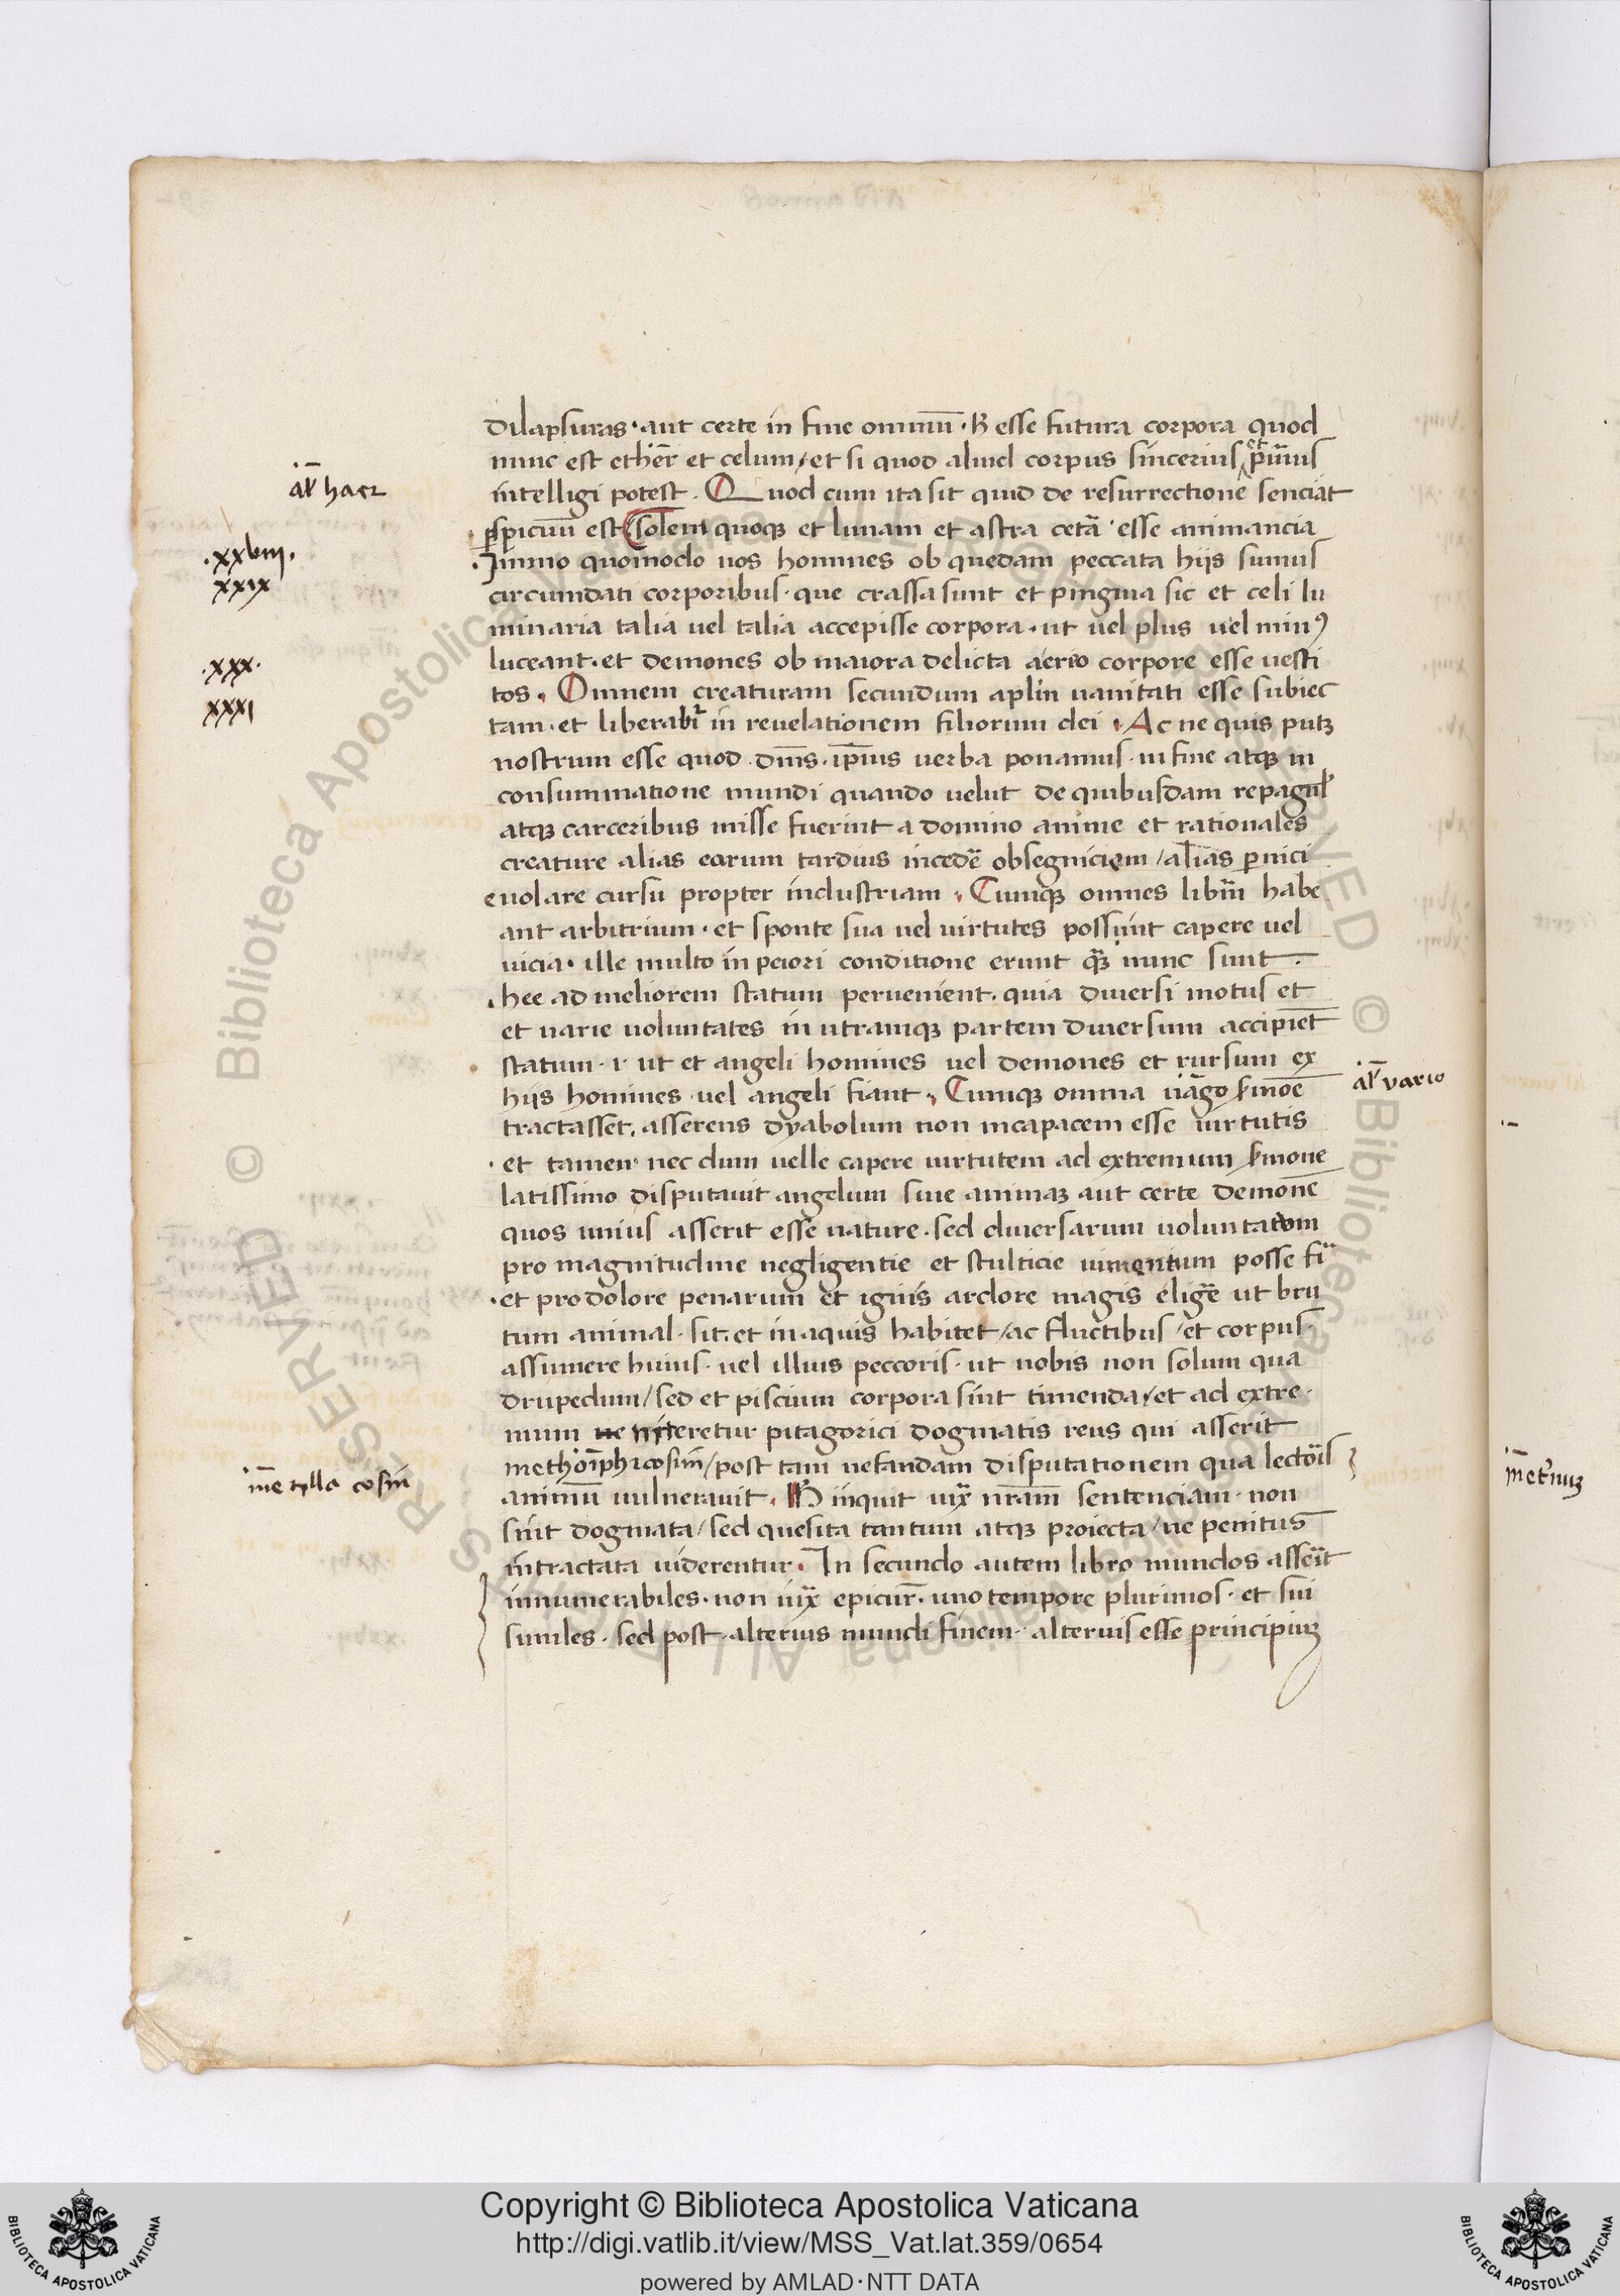 dilapsuras · aut certe in fine omniū · H̄ esse futura corpora quod
nunc est ether et celum / et si quod aliud corpus sincerius et p̄uius
al' haer
intelligi potest · Quod cum ita sit quid de resurrectione senciat
ꝑspicuū est · solem quoqꝫ et lunam et astra cetā · esse animancia
·xxviii·
· Immo quomodo nos homines ob quedam peccata hijs sumus
xxix
circumdati corporibus · que crassa sunt et pinguia sic et celi lu
minaria talia uel talia accepisse corpora · ut uel plus uel minꝰ
·xxx·
luceant · et demones ob maiora delicta aereo corpore esse uesti
tos · Omnem creaturam secundum aplm̄ uanitati esse subiec
xxxi
tam · et liberabr̄ in reuelationem filiorum dei · Ac ne quis putꝫ
nostrum esse quod dm̄s · ip̄ius uerba ponamus · in fine atqꝫ in
consummatione mundi quando uelut de quibusdam repagul'
atqꝫ carceribus misse fuerint a domino anime et rationales
creature alias earum tardius incedē ob segniciem / alias ꝑnici
euolare cursu propter industriam · Cumqꝫ omnes libm̄ habe
ant arbitrium · et sponte sua uel uirtutes possunt capere uel
uicia · ille multo in peiori conditione erunt q̄ꝫ nunc sunt ·
· hee ad meliorem statum peruenient · quia diuersi motus et
et uarie uoluntates in utramqꝫ partem diuersum accipiēt
statum · i · ut et angeli homines uel demones et rursum ex
al' vario
hijs homines · uel angeli fiant · Cumqꝫ omnia uāgo s̄mone
tractasset · asserens dyabolum non incapacem esse uirtutis
· et tamen nec dum uelle capere uirtutem ad extremum s̄mone
latissimo disputauit angelum siue animaꝫ aut certe demonē
quos unius asserit esse nature · sed diuersarum uoluntatem
pro magnitudine negligentie et stulticie iumentum posse fi''
· et pro dolore penarum et ignis ardore magis eligē ut bru
tum animal · sit · et in aquis habitet / ac fluctibus / et corpus ·
assumere huius · uel illius peccoris · ut nobis non solum qua
drupedum / sed et piscium corpora sint timenda / et ad extre ·
mum ne niteretur pitagorici dogmatis reus qui asserit
methoīphicosim̄ / post tam nefandam disputationem qua lectoīs
 animū uulnerauit · H̄ inquit iux̄ nr̄am sentenciam · non
sint dogmata / sed quesita tantum atqꝫ proiecta / ne penitus
intractata uiderentur · In secundo autem libro mundos asseīt
innumerabiles · non iux̄ epicur̄ · uno tempore plurimos · et sui
similes · sed post · alterius mundi finem · alterius esse principiuꝫ
Copyright © Biblioteca Apostolica Vaticana
http://digi.vatlib.it/view/MSS_Vat.lat.359/0654
powered by AMLAD·NTT DATA
BIBLIOTECA APOSTOLICA VATICANA
BIBLIOTECA APOSTOLICA VATICANA